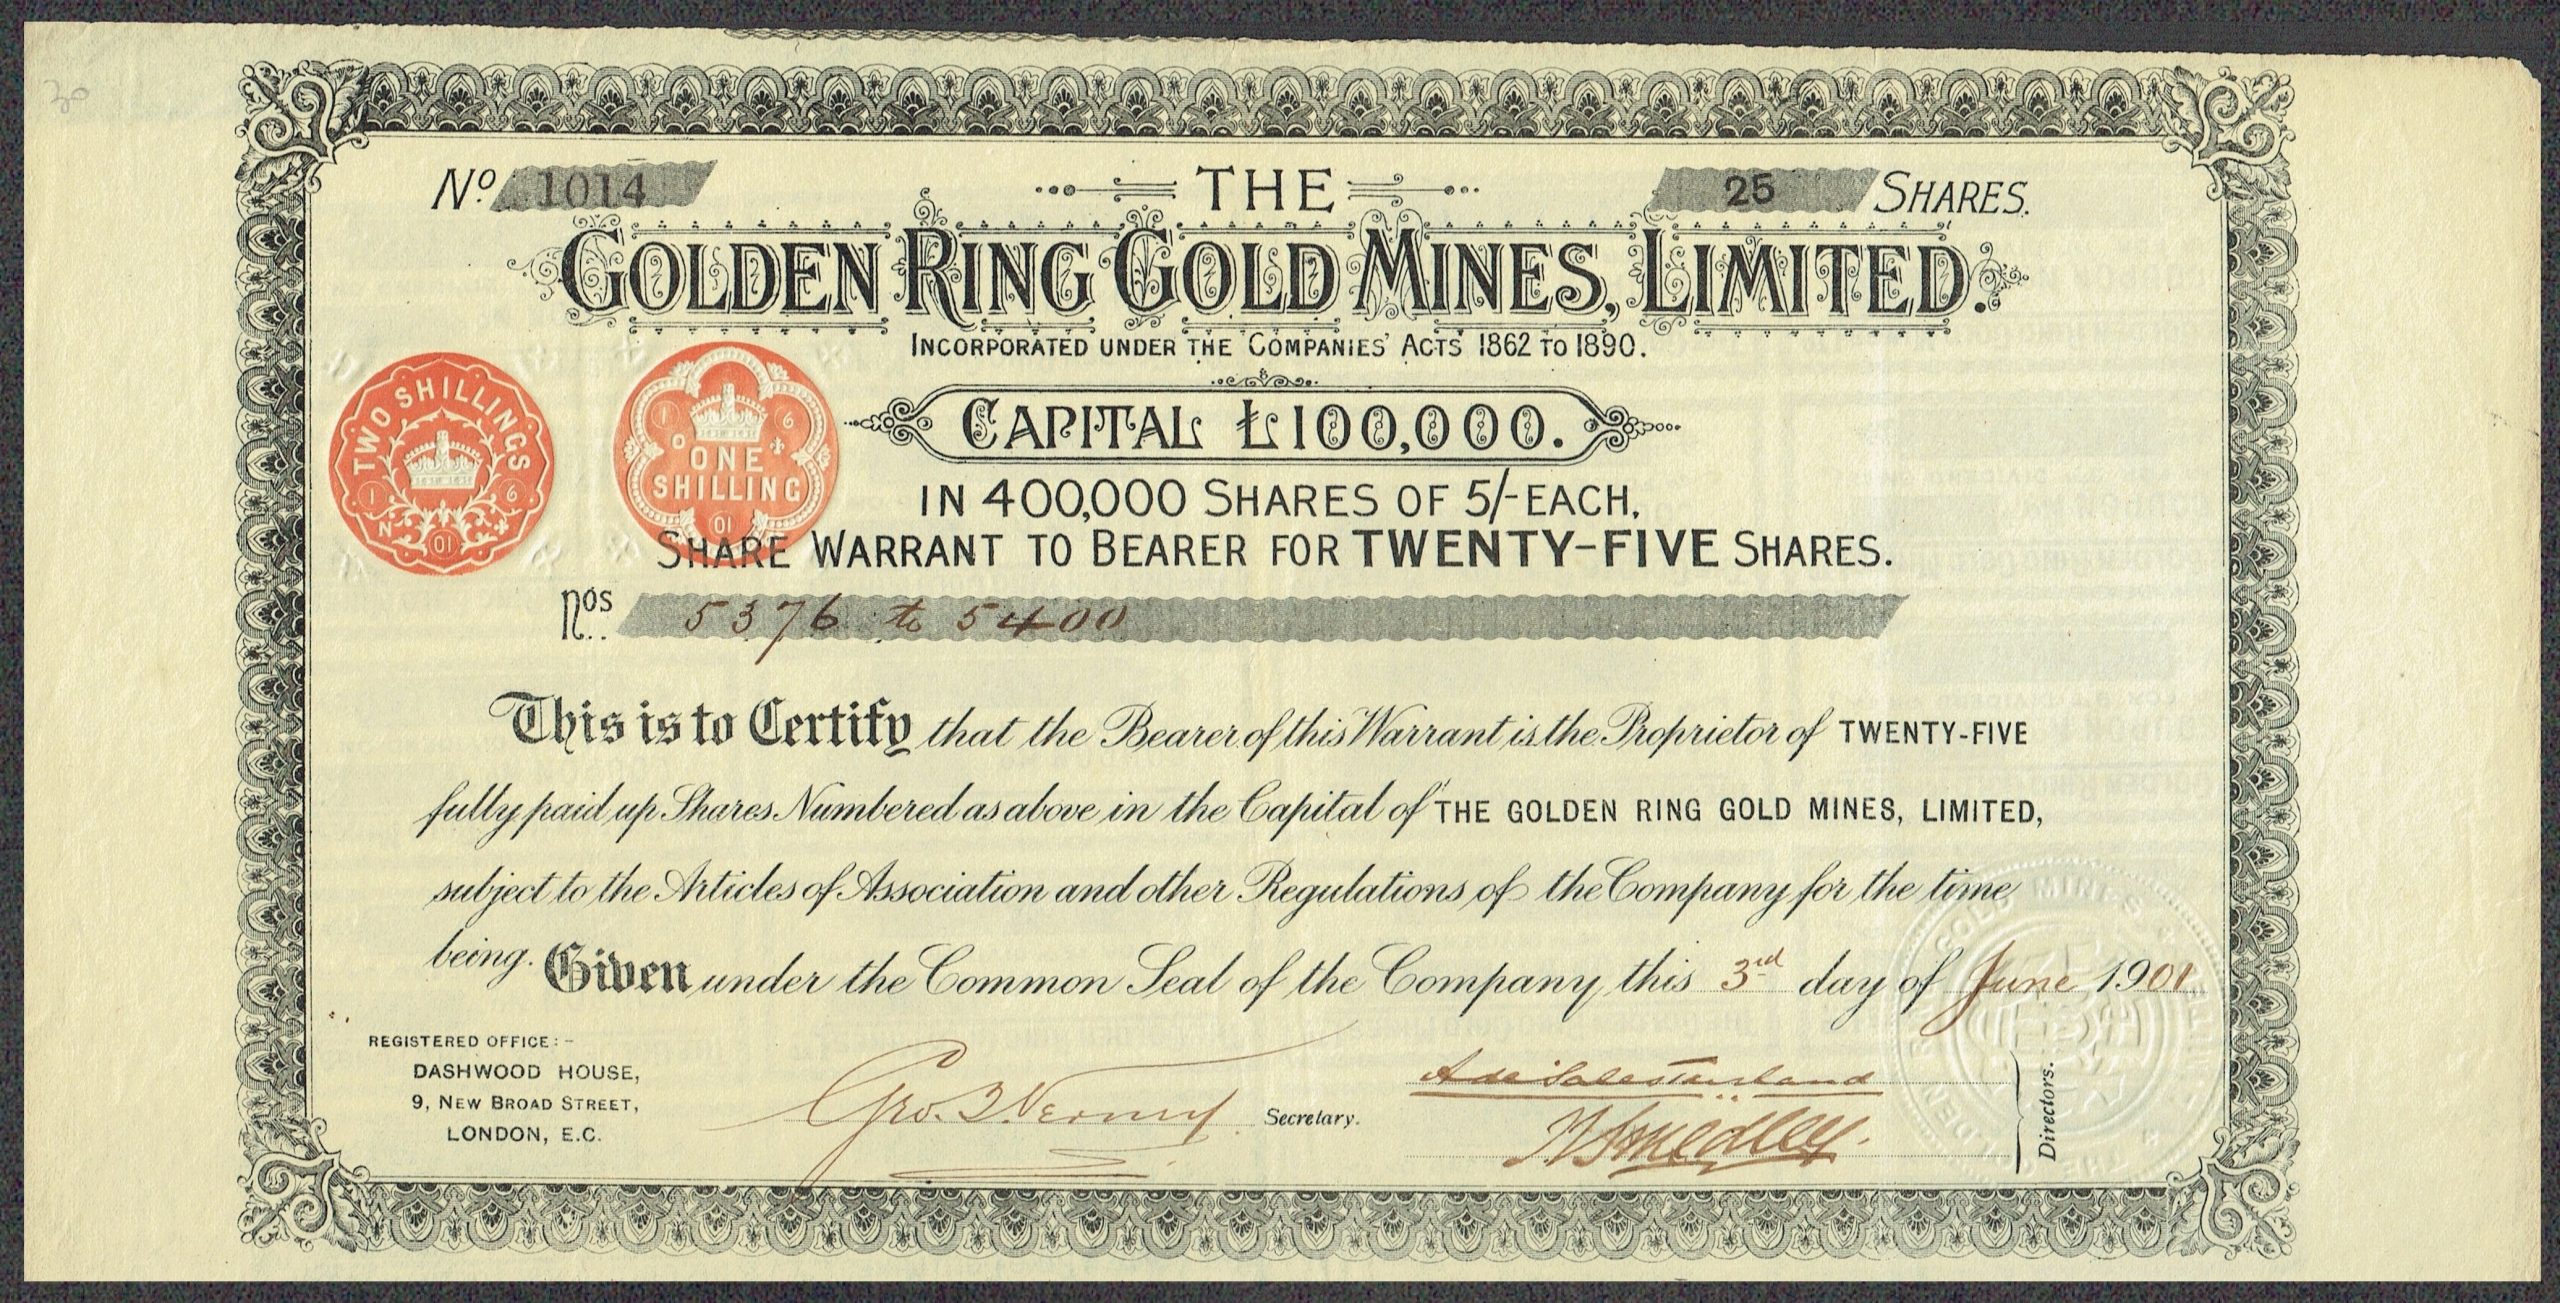 No. 1014
THE
25 SHARES.
GOLDEN RING GOLD MINES, LIMITED.
INCORPORATED UNDER THE COMPANIES' ACTS 1862 TO 1890.
CAPITAL £100,000.
IN 400,000 SHARES OF 5/- EACH.
TWO SHILLINGS
1 6
N
01
1 6
O
ONE
SHILLING
01
SHARE WARRANT TO BEARER FOR TWENTY-FIVE SHARES.
Nos. 5376 to 5400
This is to Certify that the Bearer of this Warrant is the Proprietor of TWENTY-FIVE
fully paid up Shares Numbered as above in the Capital of "THE GOLDEN RING GOLD MINES, LIMITED,
subject to the Articles of Association and other Regulations of the Company for the time
being. Given under the Common Seal of the Company this 3rd day of June 1901
REGISTERED OFFICE:-
DASHWOOD HOUSE,
9, NEW BROAD STREET,
LONDON, E.C.
Geo. Secretary.
Smedley
Directors.
GOLD MINES